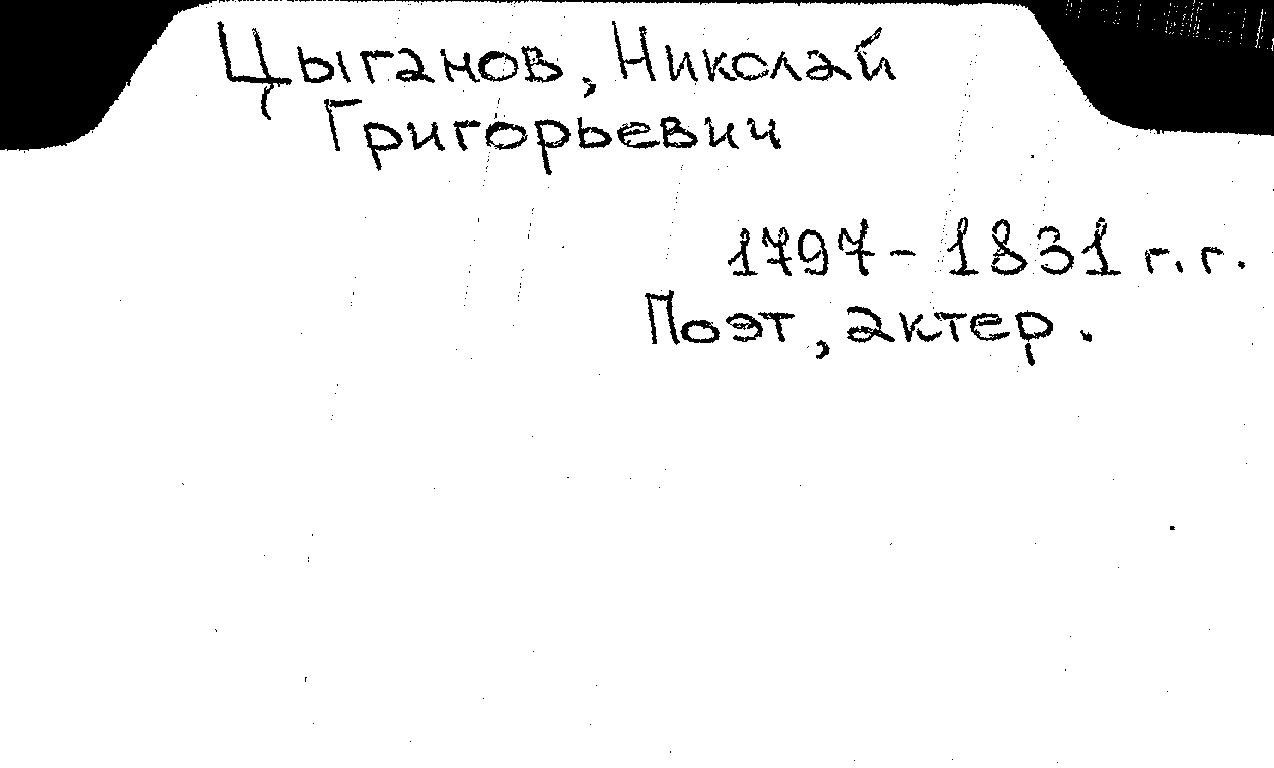 Цыганов, Николай
Григорьевич
1797- 1831 г.г.
Поэт, актер.